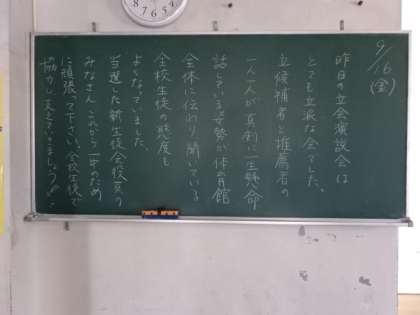 9/16
(金)
昨日の立会演説会は
とても立派な会でした。
立候補者と推薦者の
一人一人が真剣に一生懸命
話している姿勢が体育館
全体に伝わり聞いている
全校生徒の態度も
よくなっていました。
当選した新生徒会役員の
みなさん これから一年のため
に頑張って下さい。全校生徒で
協力し支えていきましょう!!